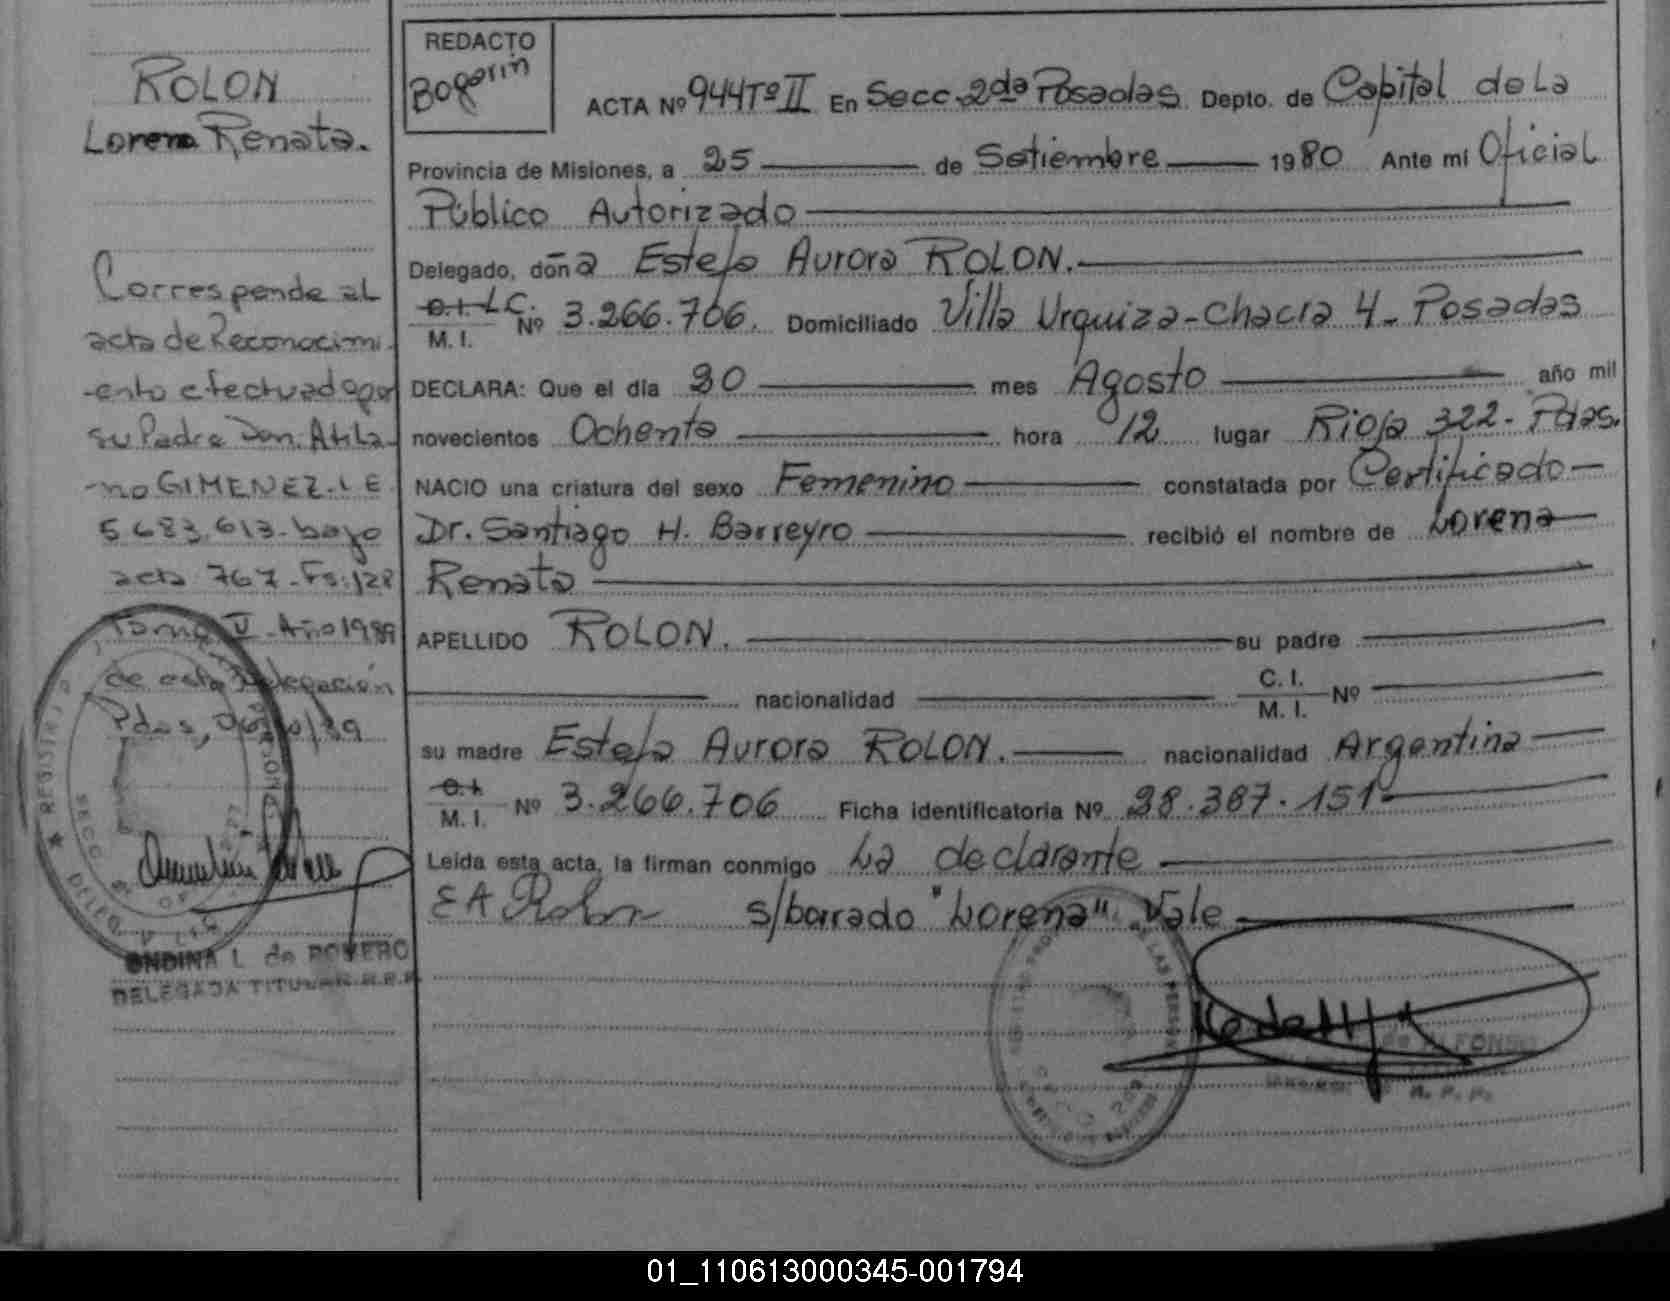 ROLON
Lorena Renata.
Corresponde al
acta de Reconocimi-
-ento efectuado por
su Padre Don. Atila-
-no GIMENEZ. L E
5.683.613-bajo
acta 767-Fs:128
Tomo V-Año 1989
de esta Delegación
Pdas, 06/10/89
ONDINA L. de ROMERO
DELEGADA TITULAR R.P.P.
REDACTO
Bogarin
ACTA Nº 944 Tº II En Secc. 2da Posadas Depto. de Capital de La
Provincia de Misiones, a 25 de Setiembre 1980 Ante mi Oficial
Público Autorizado
Delegado, doña Estela Aurora ROLON.
C.I. L.C.
M. I. Nº 3.266.706. Domiciliado Villa Urquiza-Chacra 4-Posadas
DECLARA: Que el día 30 mes Agosto año mil
novecientos Ochenta hora 12 lugar Rioja 322-Pdas.
NACIO una criatura del sexo Femenino constatada por Certificado
Dr. Santiago H. Barreyro recibió el nombre de Lorena
Renata
APELLIDO ROLON. su padre
nacionalidad C. I.
M. I. Nº
su madre Estela Aurora ROLON. nacionalidad Argentina
C.I.
M. I. Nº 3.266.706 Ficha identificatoria Nº 28.387.151
Leída esta acta, la firman conmigo La declarante
E A Rolon s/borrado "Lorena" Vale
de ALFONSO
R. P. P.
01_110613000345-001794